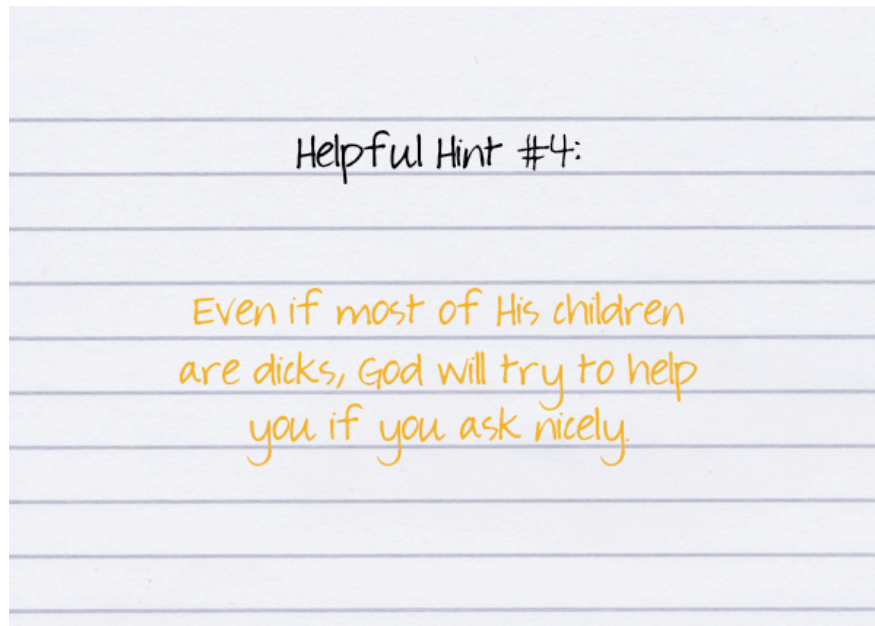 Helpful Hint #4:
Even if most of His children
are dicks, God will try to help
you if you ask nicely.